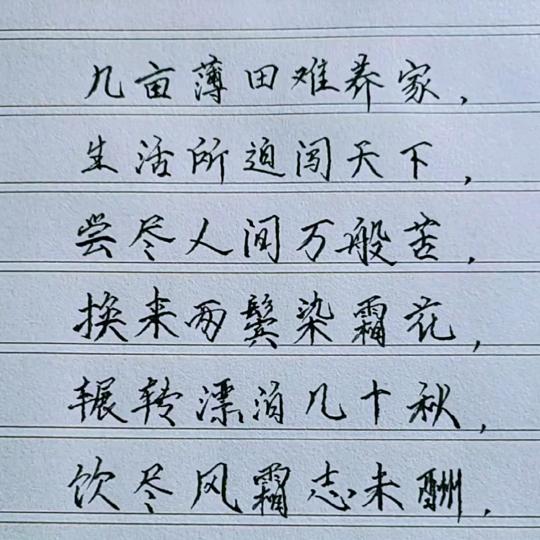 几亩薄田难养家，
生活所迫闯天下，
尝尽人间万般苦，
换来两鬓染霜花，
辗转漂泊几十秋，
饮尽风霜志未酬，